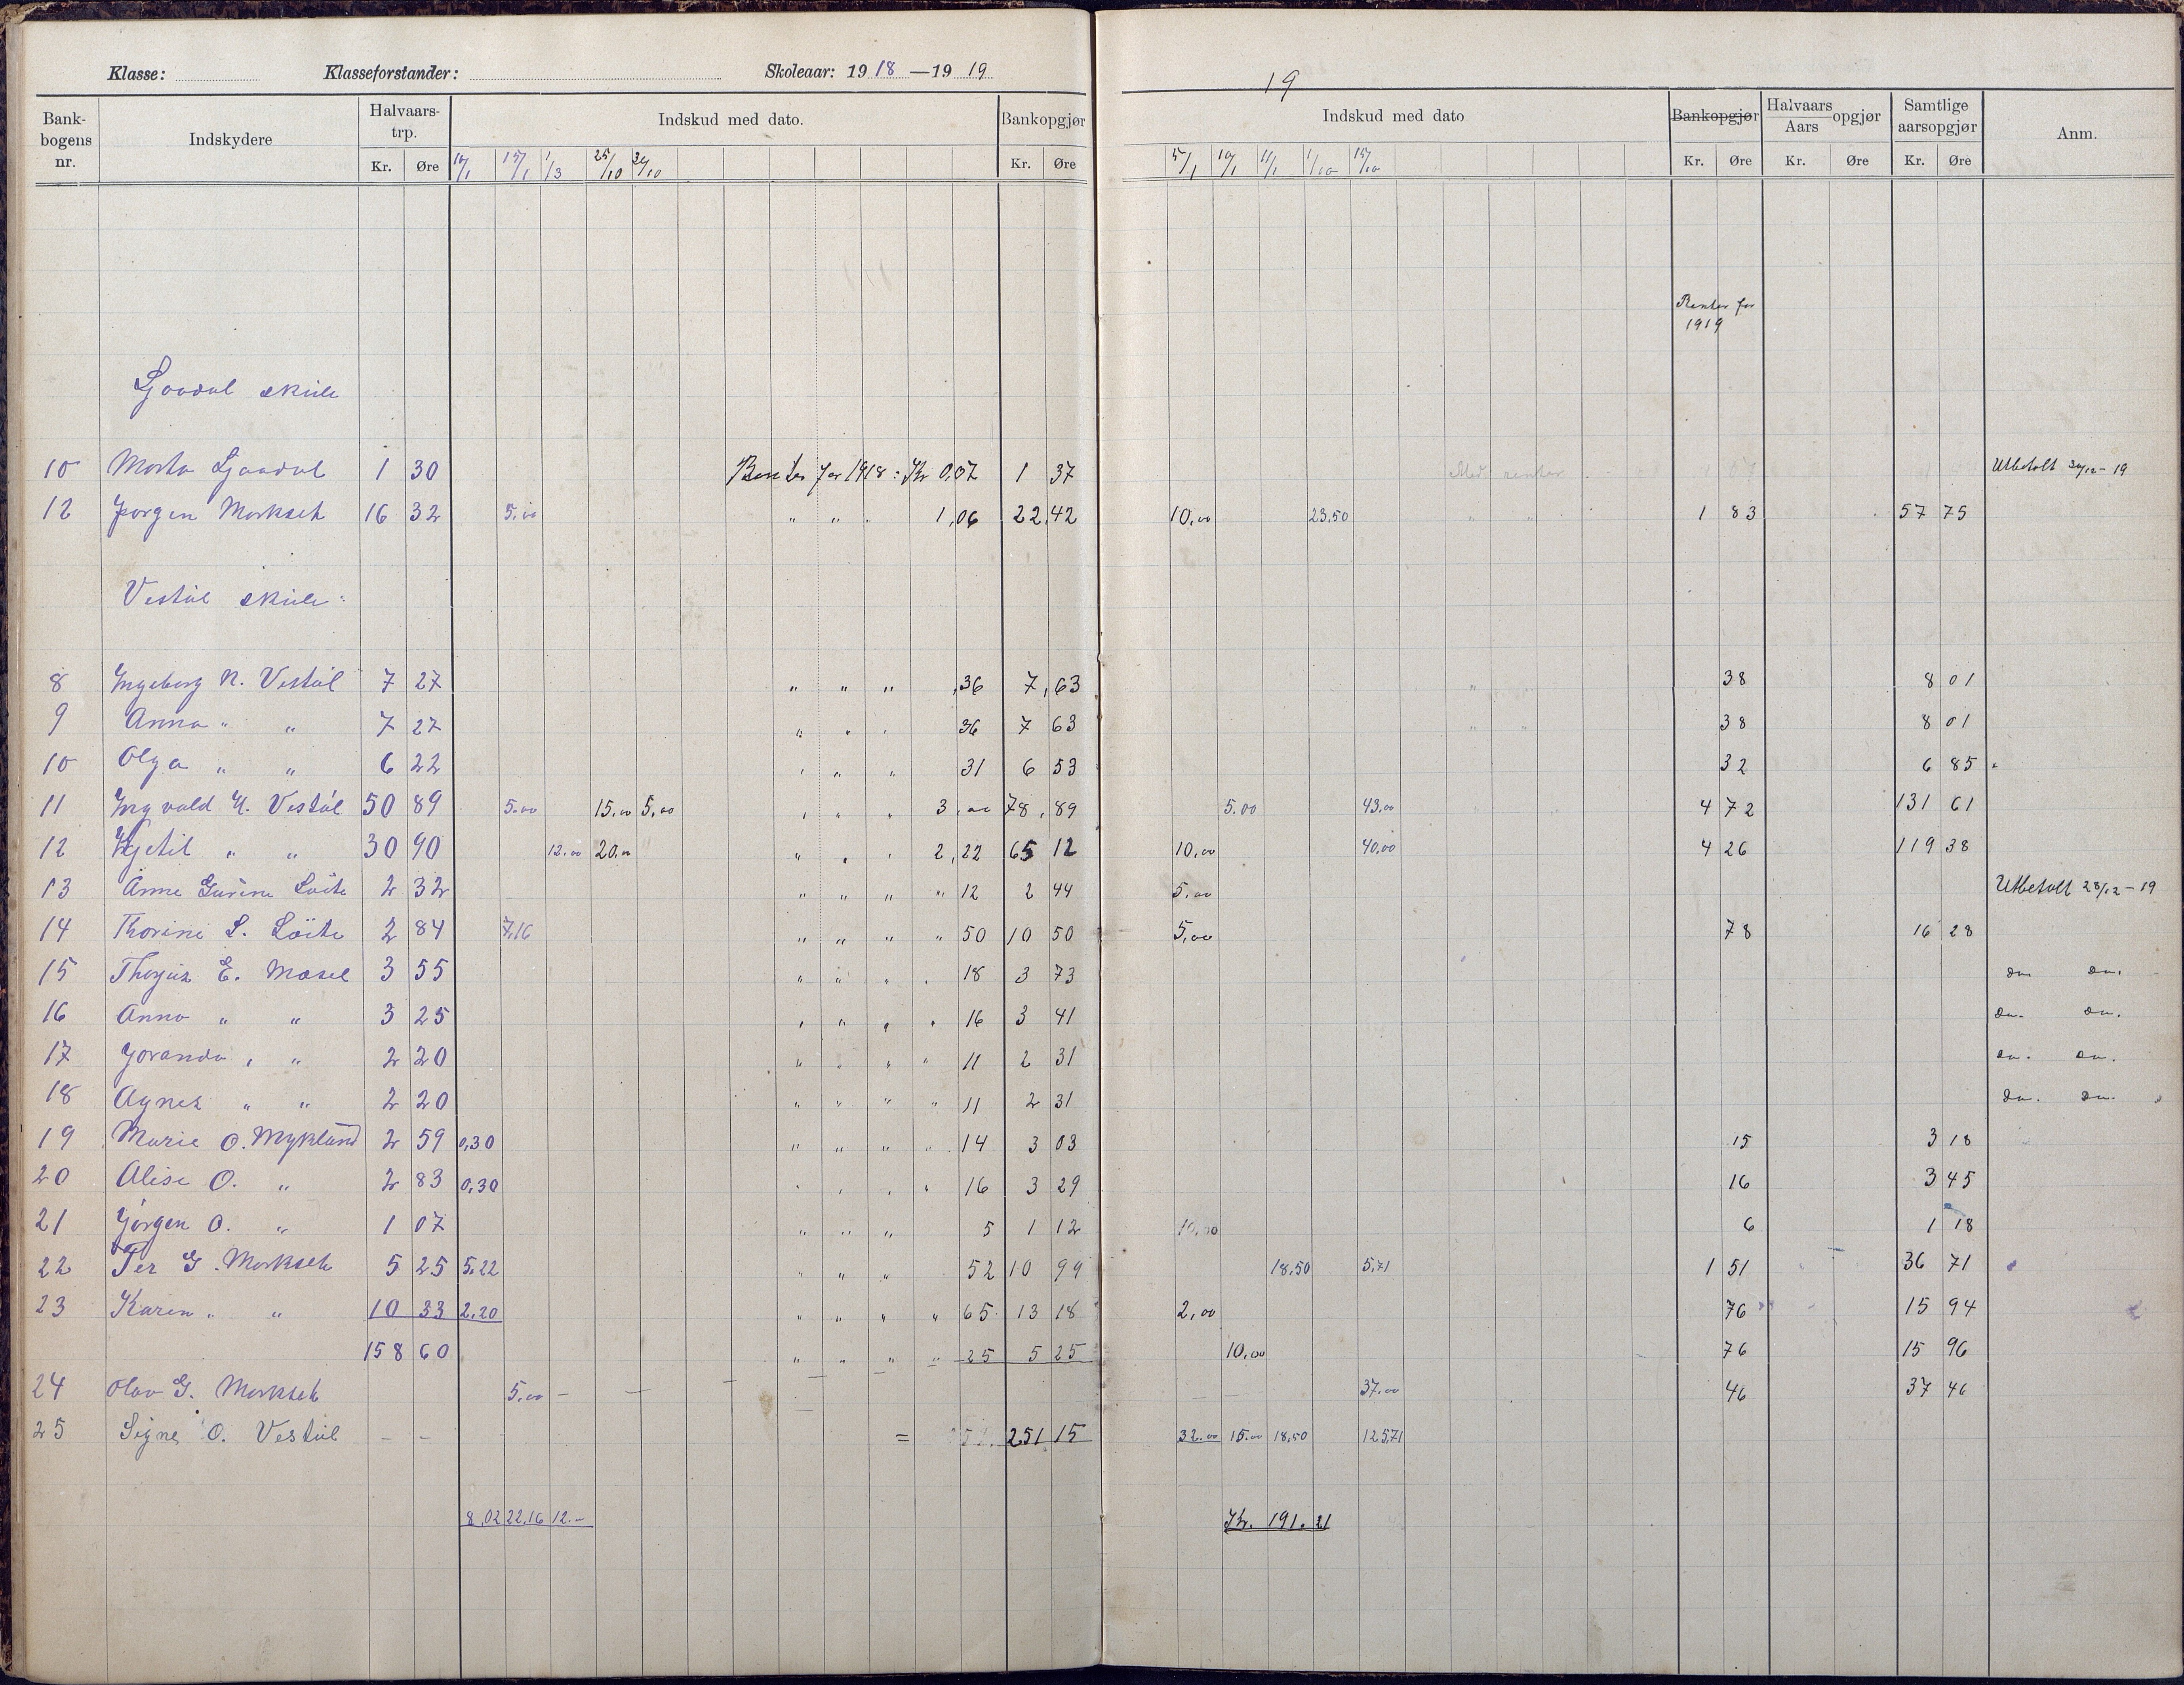 Klasse: Klasseforstander: Skoleaar: 1918—1919
19
Bankbogens nr. Indskydere Halvaarstrp. Indskud med dato. Bankopgjør Indskud med dato Bankopgjør Halvaars Aars opgjør Samtlige aarsopgjør Anm.
Kr. Øre 15/1 1/3 25/10 Kr. Øre 5/1 10/1 11/1 1/10 15/10 Kr. Øre Kr. Øre Kr. Øre
Renter for
1919
Ljosdal skule
10 Marta Ljosdal 1 30 Renter for 1918: Kr 0,07 1 37 Med renter Utbetalt 30/12-19
12 Jørgen Morkseth 16 32 5.00 " " " 1,06 22,42 10,00 23,50 " " 1 83 57 75
Vestøl skule:
8 Ingeborg N. Vestøl 7 27 " " " ,36 7,63 " 38 8 01
9 Anna " " 7 27 " " " 36 7 63 " " 38 8 01
10 Olga " " 6 22 " " " 31 6 53 32 6 85
11 Ingvald N. Vestøl 50 89 5.00 15,00 5,00 " " " 3,00 78,89 5.00 43,00 4 72 131 61
12 Kjetil " " 30 90 12.00 20,00 " " " 2,22 65 12 10,00 40,00 4 26 119 38
13 Anne Gurine Løite 2 32 " " " " 12 2 44 5,00 Utbetalt 28/12-19
14 Thorine S. Løite 2 84 7,16 " " " " 50 10 50 5,00 78 16 28
15 Thorjus E. Mosel 3 55 " " " " 18 3 73 do. do.
16 Anna " " 3 25 " " " " 16 3 41 do. do.
17 Joranda " " 2 20 " " " " 11 2 31 do. do.
18 Agnes " " 2 20 " " " " 11 2 31 do. do.
19 Marie O. Myklund 2 59 0,30 " " " " 14 3 03 15 3 18
20 Alise O. " 2 83 0,30 " " " " 16 3 29 16 3 45
21 Jørgen O. " 1 07 " " " 5 1 12 10,00 6 1 18
22 Per G. Morkseth 5 25 5.22 " " " 52 10 99 18,50 5,71 1 51 36 71
23 Karen " " 10 33 2,20 " " " " 65 13 18 2,00 76 15 94
158 60 " " " " 25 5 25 10,00 76 15 96
24 Olav G. Morkseth 5,00 — — — — — 37.00 46 37 46
25 Signe O. Vestøl — — = 251 15 32.00 15.00 18,50 125,71
8,02 22,16 12.- Kr. 191.21